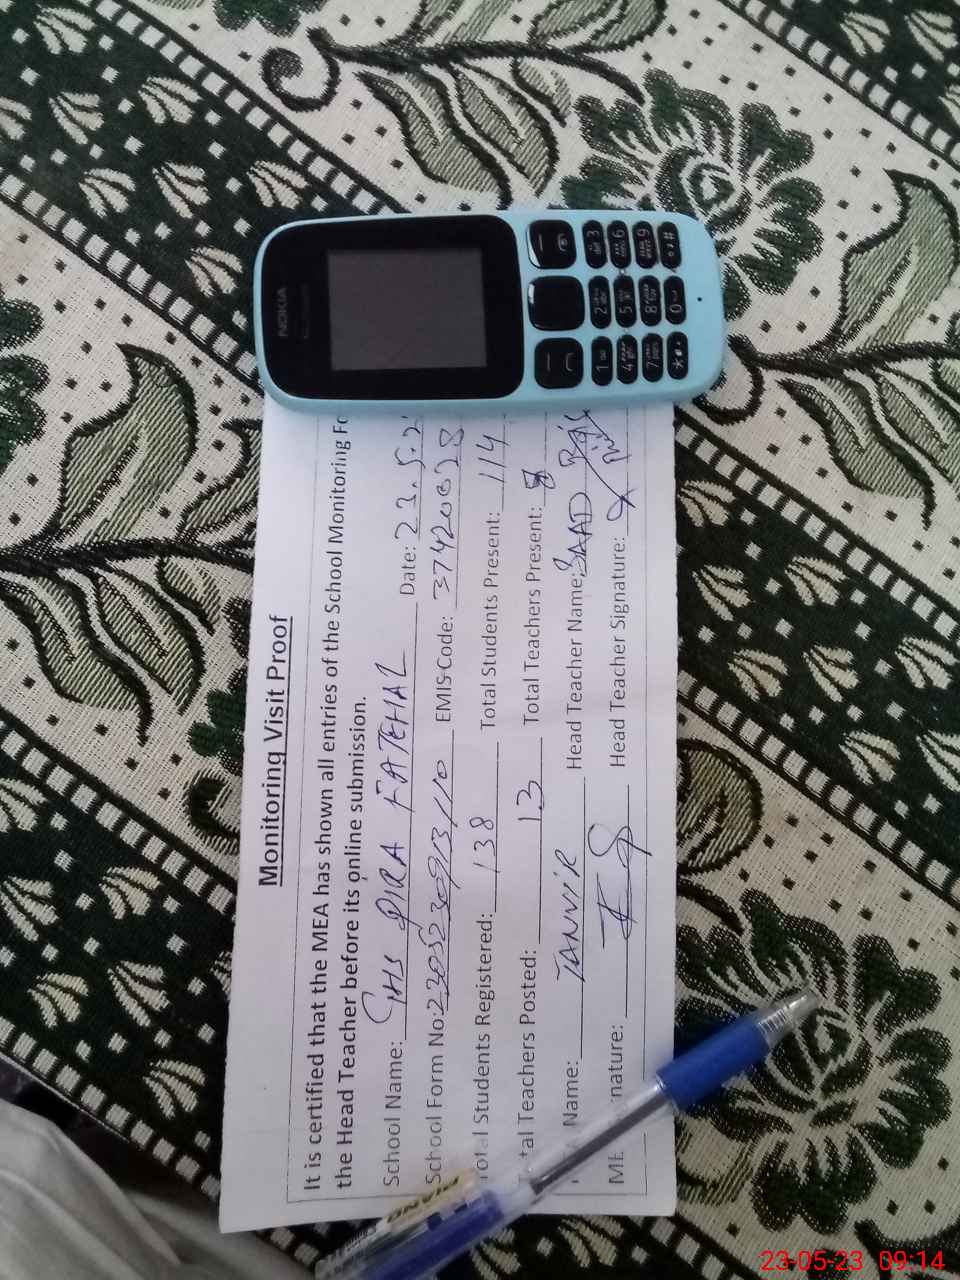 Monitoring Visit Proof
It is certified that the MEA has shown all entries of the School Monitoring Fo
the Head Teacher before its online submission.
School Name: GHS PIRA FATEHAL Date: 23.5.2
School Form No: EMIS Code: 37420028
Total Students Registered: 138 Total Students Present: 114
tal Teachers Posted: 13 Total Teachers Present:
Name: TANVIR Head Teacher Name: SAAD
ME nature: Head Teacher Signature:
NOKIA
1 2 abc 3 def
4 ghi 5 jkl 6 mno
7 pqrs 8 tuv 9 wxyz
* 0 #
PIANO
23-05-23 09:14